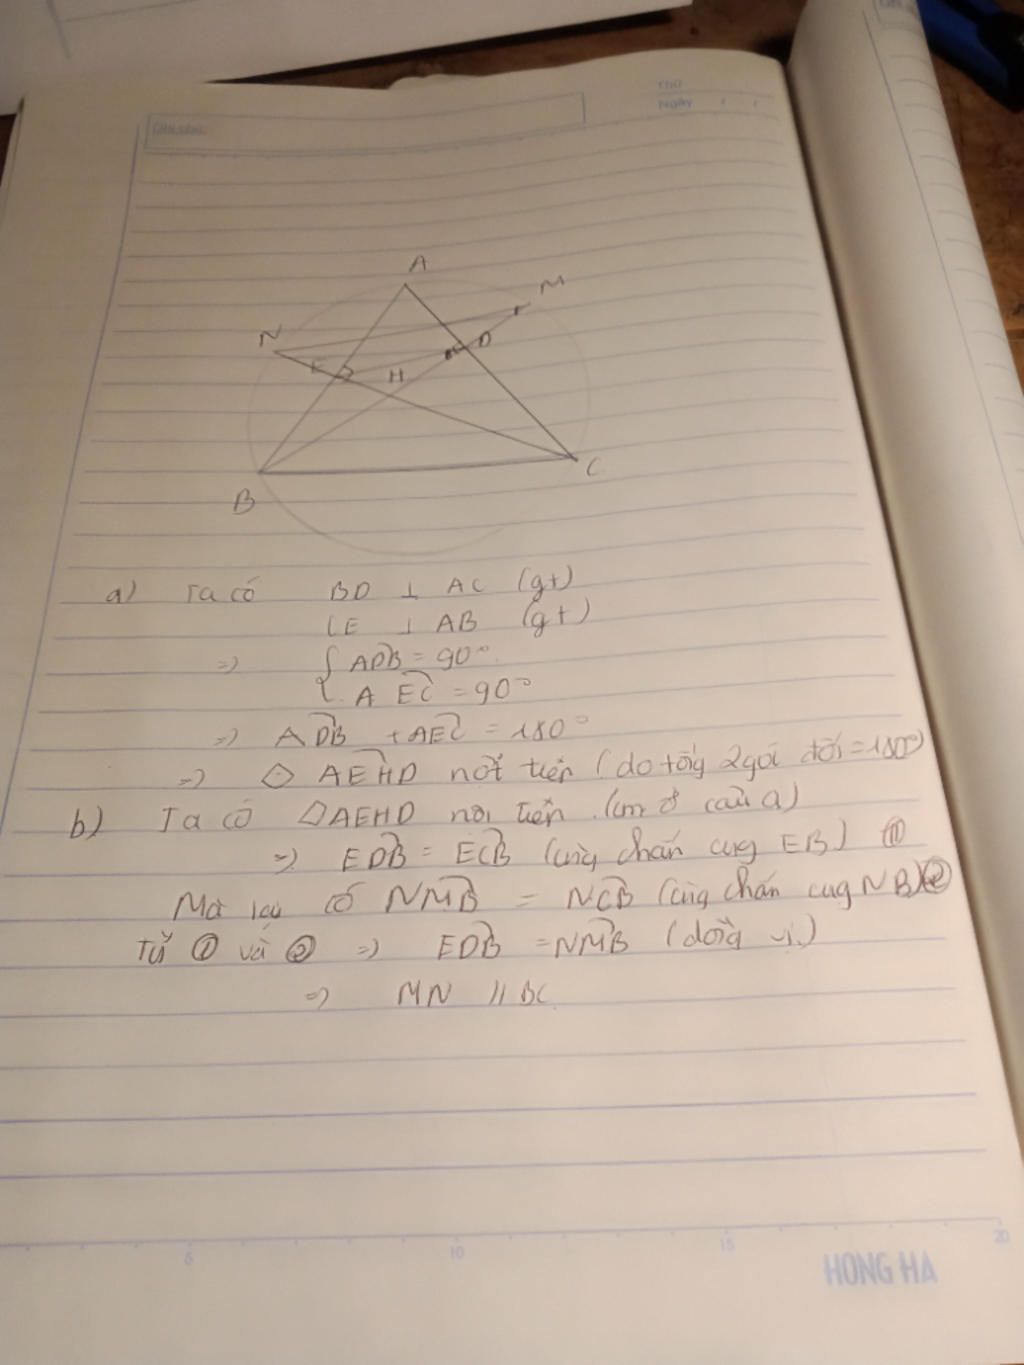 Thứ
Ngày / /
A
M
N
D
E
H
C
B
a) Ta có BD ⊥ AC (gt)
CE ⊥ AB (gt)
=> { ADB = 90°
AEC = 90°
=> ADB + AEC = 180°
=> ◇ AEHD nội tiếp (do tổng 2 gói đối = 180°)
b) Ta có ◇AEHD nội tiếp (cm ở câu a)
=> EDB = ECB (cùng chắn cug EB) ①
Mà lại có NMB = NCB (cùng chắn cug NB) ②
Từ ① và ② => EDB = NMB (đồng vị)
=> MN // BC
5 10 15 20
HONG HA